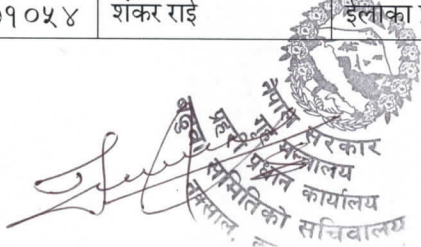 १०५४ शंकर राई ईलाका
नेपाल सरकार
गृह मन्त्रालय
प्रहरी प्रधान कार्यालय
बढुवा समितिको सचिवालय
नक्साल,